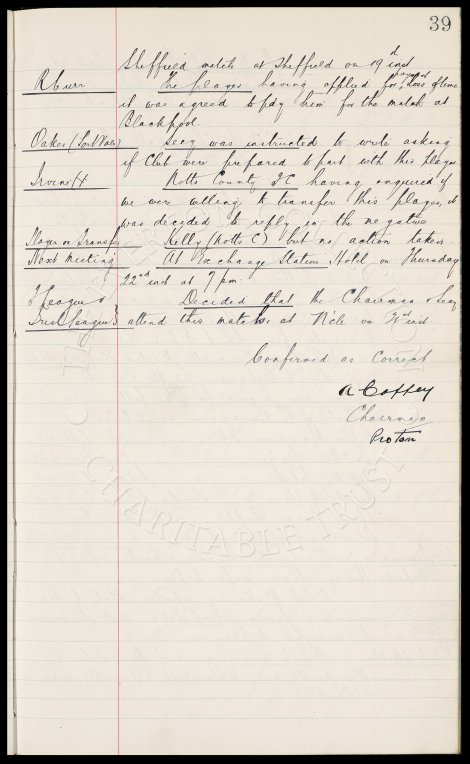 39
Sheffield match at Sheffield on 19th inst
R Curr The player having applied for payment loss of time
it was agreed to pay him for the match at
Blackpool.
Oakes (Port Vale) Secy was instructed to write asking
if Club were prepared to part with this player
Irvine Notts County FC having enquired if
we were willing to transfer this player, it
was decided to reply in the negative
Player on Transfer Kelly (Notts C) but no action taken.
Next Meeting At Exchange Station Hotel on Thursday
22nd inst at 7 pm.
F League v Decided that the Chairman & Secy
Irish League} attend this match at N'cle on inst.
Confirmed as Correct
A Coffey
Chairman
Pro Tem
CHARITABLE TRUST